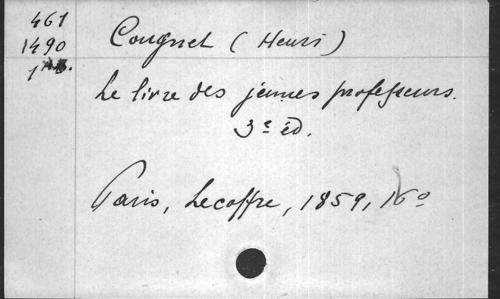 461
1490
Congnet (Henri)
Le livre des jeunes professeurs.
3e éd.
Paris, Lecoffre, 1859, 16o